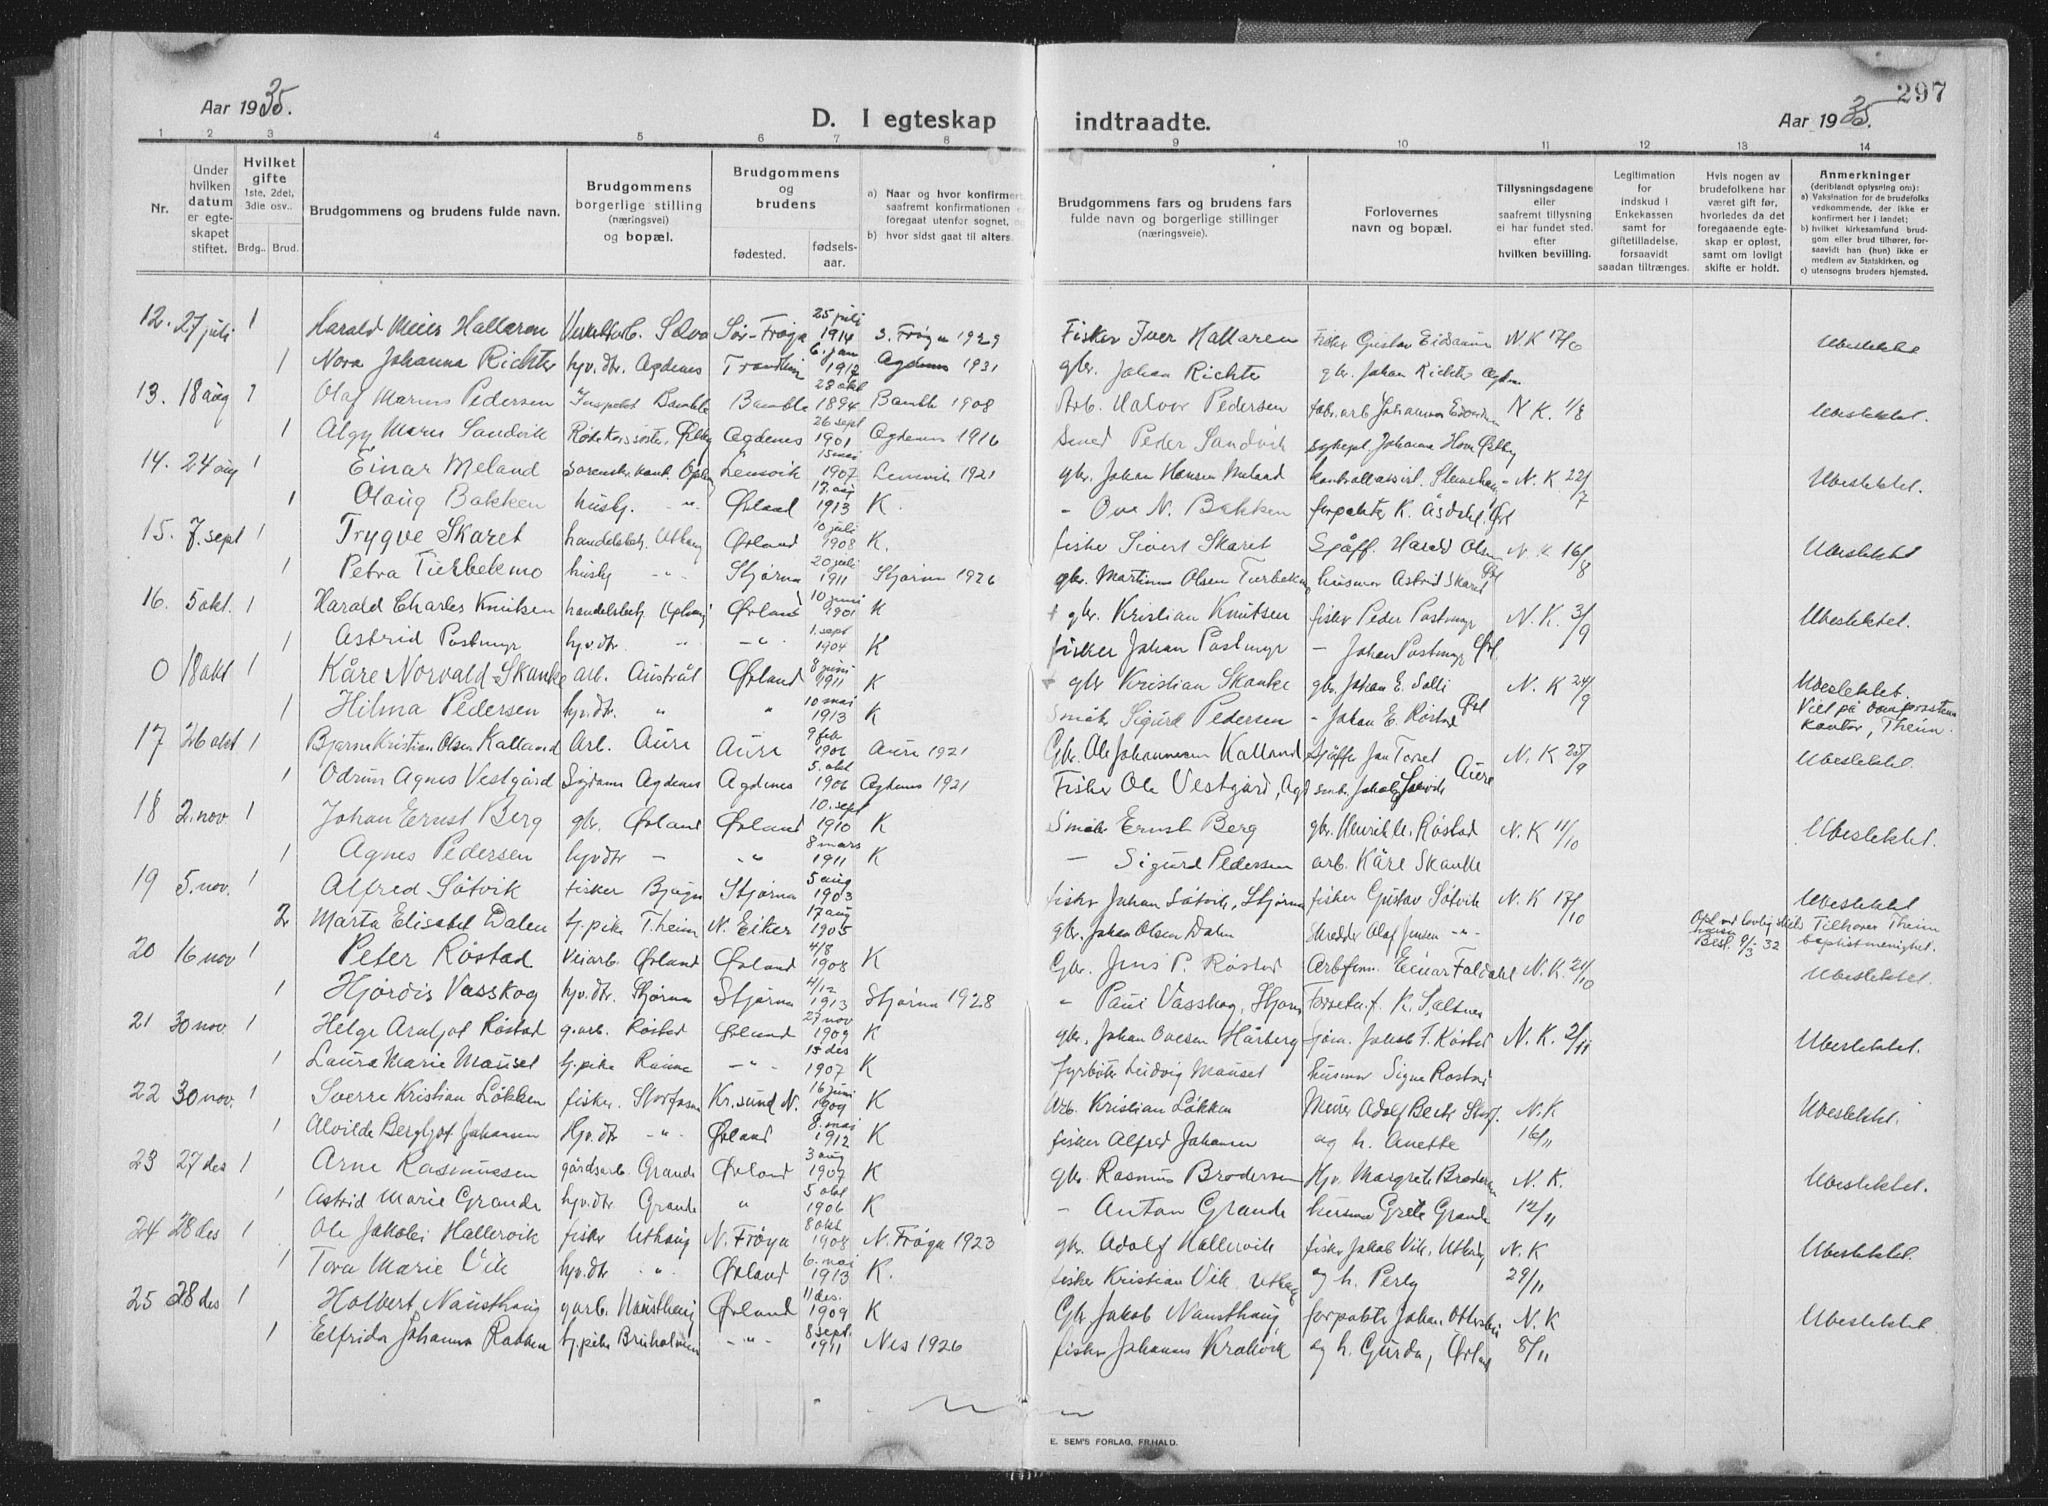 297
Aar 1935.
D. I egteskap indtraadte.
Aar 1935.
1 2 3 4 5 6 7 8 9 10 11 12 13 14
Nr.
Under hvilken datum er egte-skapet stiftet.
Hvilket gifte 1ste, 2det, 3die osv..
Brdg.. Brud.
Brudgommens og brudens fulde navn.
Brudgommens borgerlige stilling (næringsvei) og bopæl.
Brudgommens og brudens
fødested. fødsels-aar.
a) Naar og hvor konfirmert, saafremt konfirmationen er foregaat utenfor sognet,
b) hvor sidst gaat til alters.
Brudgommens fars og brudens fars fulde navn og borgerlige stillinger (næringsveie).
Forlovernes navn og bopæl.
Tillysningsdagene eller saafremt tillysning ei har fundet sted. efter hvilken bevilling.
Legitimation for indskud i Enkekassen samt for giftetilladelse, forsaavidt saadan tiltrænges.
Hvis nogen av brudefolkene har været gift før, hvorledes da det foregaaende egte-skap er opløst, samt om lovligt skifte er holdt.
Anmerkninger (deriblandt oplysning om):
a) Vaksination for de brudefolks vedkommende, der ikke er konfirmert her i landet;
b) hvilket kirkesamfund brud-gom eller brud tilhører, for-saavidt han (hun) ikke er medlem av Statskirken, og
c) utensogns bruders hjemsted.
12. 27 juli 1 Harald Meier Hallaren Selva Sør-Frøya 25 juli 1914 S. Frøya 1929 Fisker Iver Hallaren Fisker Gustav NK 17/6 Ubeslektet
1 Nora Johanna Richter hjv.dtr. Agdenes 6. jan 1912 Agdenes 1931 gbr. Johan Richter gbr. Johan Richter Agdn
13. 18 aug 1 Olaf Marius Pedersen Bamble Bamble 28 okt 1894 Bamble 1908 Arb. Halvor Pedersen fabr.arb Johannes N.K. 1/8 Ubeslektet.
1 Algy Marie Sandvik Agdenes 26 sept 1901 Agdenes 1916 Smed Peder Sandvik sykepl. Johanna
14. 24 aug 1 Einar Meland Lensvik 15 mai 1907 Lensvik 1921 gbr. Johan Hansen Meland kontrollassist. N.K. 22/7 Ubeslektet.
1 Olaug Bakken husbj. " Ørland 17. aug 1913 K. - Ove N. Bakken forpakter K. Åsdahl, Ørl
15. 7. sept 1 Trygve Skaret handelsbetj. Uthaug Ørland 10 juli 1908 K. fisker Sivert Skaret Sjåff. Harald Olsen N.K 16/8 Ubeslektet
1 Petra Tiurbekmo husbj " Stjørna 20 juli 1911 Stjørna 1926 gbr. Martinus Olsen Turbekmo husmor Astrid Skaret Ørl
16. 5 okt. 1 Harald Charles Knutsen handelsbetj. Ørland 10 juni 1901 K gbr. Kristian Knutsen fisker Peder Postmyr N.K. 3/9 Ubeslektet.
1 Astrid Postmyr hjv.dtr. " - " 1. sept 1904 K fisker Johan Postmyr - Johan Postmyr Ørl
0 18 okt 1 Kåre Norvald Skanke arb. Austråt Ørland 8 juni 1911 K gbr Kristian Skanke gbr. Johan E. Solli N.K 24/9 Ubeslektet.
1 Hilma Pedersen hjv.dtr. " " 10 mai 1913 K Småbr Sigurd Pedersen - Johan E. Røstad Ørl Viet på kontor, Theim.
17 26 okt 1 Bjarne Kristian Olsen Kalland Arb. Aure Aure 9 feb 1906 Aure 1921 Gbr. Ole Johannesen Kalland sjåffør Jan N.K 25/9 Ubeslektet.
1 Odrun Agnes Vestgård Sydame Agdenes Agdenes 5. okt 1906 Agdenes 1921 Fisker Ole Vestgård, Agd smbr. Jakob Aure
18 2. nov 1 Johan Ernst Berg gbr. Ørland Ørland 10. sept 1910 K Småbr Ernst Berg gbr. Henrik U. Røstad N.K 11/10 Ubeslektet.
1 Agnes Pedersen hjv.dtr - " 8 mars 1911 K - Sigurd Pedersen arb. Kåre Skanke
19 5. nov. 1 Alfred Såtvik fisker Bjugn Stjørna 5 aug 1903 fisker Johan Såtvik, Stjørna fisker Gustav Såtvik N.K 17/10 Ubeslektet
2 Marta Elisabet Dalen hj.pike T.heim N. Eiker 17 aug 1905 gbr. Johan Olsen Dalen Skredder Olaf Jensen - " - Besl. 9/3 32 Tilhører Theim baptistmenighet.
20 16 nov 1 Peter Røstad Veiarb. Ørland Ørland 4/8 1908 K Gbr. Jens P. Røstad Arbform. Einar Faldahl N.K. 21/10 Ubeslektet.
1 Hjørdis Vasskog hjv.dtr. Stjørna Stjørna 4/12 1913 Stjørna 1928 " Paul Vasskog, Stjørna K. Saltnes
21 30 nov 1 Helge Arnljot Røstad g.arb. Røstad Ørland 27 nov 1909 K gbr. Johan Ovesen Hårberg Jakob F. Røstad N.K. 2/11 Ubeslektet.
1 Laura Marie Mauset hj.pike - " - 15 des 1907 K fyrbøter Ludvig Mauset husmor Signe Røstad
22 30 nov. 1 Sverre Kristian Løkken fisker. Storfosna Kr.sund N. 16 juni 1909 K Arb. Kristian Løkken Meier Adolf Beck Storf. N.K 16/11 Ubeslektet.
1 Alvilde Bergljot Johansen Hjv.dtr - " Ørland 8. mai 1912 K fisker Alfred Johansen og h. Anette
23 27 des 1 Arne Rasmussen gårdsarb. Grande Ørland 3 aug 1907 K gbr Rasmus Brodersen Hjv. Margrete Brodersen N.K. 12/11 Ubeslektet.
1 Astrid Marie Grande hjv.dtr Grande " 5 okt 1906 K - Anton Grande husmor Grete Grande
24 28 des 1 Ole Jakobi Hallervik fisker Uthaug N. Frøya 8 okt 1908 N. Frøya 1923 gbr. Adolf Hallervik fisker Jakob Vik, Uthaug N.K 29/11 Ubeslektet.
1 Tora Marie Vik hjv.dtr " Ørland 6. mai 1913 K. fisker Kristian Vik Uthaug og h. Perly
25 28 des 1 Holbert Nausthaug g.arb. Nausthaug Ørland 11 des. 1909 K Gbr Jakob Nausthaug forpakter Johan N.K 8/11 Ubeslektet
1 Elfrida Johanna hj.pike Bruholmen - " - 8 sept. 1911 Nes 1926 fisker Johannes Krakvik og h. Gurda, Ørland
E. SEM'S FORLAG, FR.HALD.